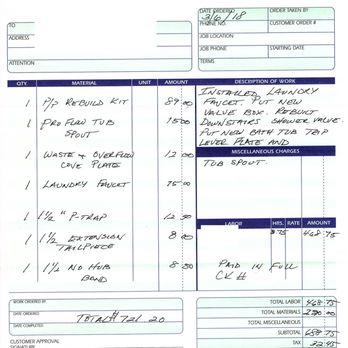 TO
ADDRESS
ATTENTION
DATE ORDERED
ORDER TAKEN BY
3/6/18
PHONE NO.
CUSTOMER ORDER #
JOB LOCATION
JOB PHONE
STARTING DATE
TERMS
QTY. MATERIAL UNIT AMOUNT
1 P/P REBUILD KIT 89 00
1 PRO FLOW TUB SPOUT 15 00
1 WASTE & OVERFLOW COVE PLATE 12 00
1 LAUNDRY FAUCET 75 00
1 1½" P-TRAP 12 50
1 1½ EXTENSION TAILPIECE 8 00
1 1½ NO HUB BOND 8 50
DESCRIPTION OF WORK
INSTALLED LAUNDRY
FAUCET. PUT NEW
VALVE BOX. REBUILT
DOWNSTAIRS SHOWER VALVE.
PUT NEW BATH TUB TRIP
LEVER PLATE AND
MISCELLANEOUS CHARGES
TUB SPOUT.
LABOR HRS. RATE AMOUNT
468.75
PAID IN FULL
CK #
WORK ORDERED BY
DATE ORDERED
DATE COMPLETED
TOTAL# 721.20
CUSTOMER APPROVAL
SIGNATURE
TOTAL LABOR 468.75
TOTAL MATERIALS
TOTAL MISCELLANEOUS
SUBTOTAL
TAX 22.45